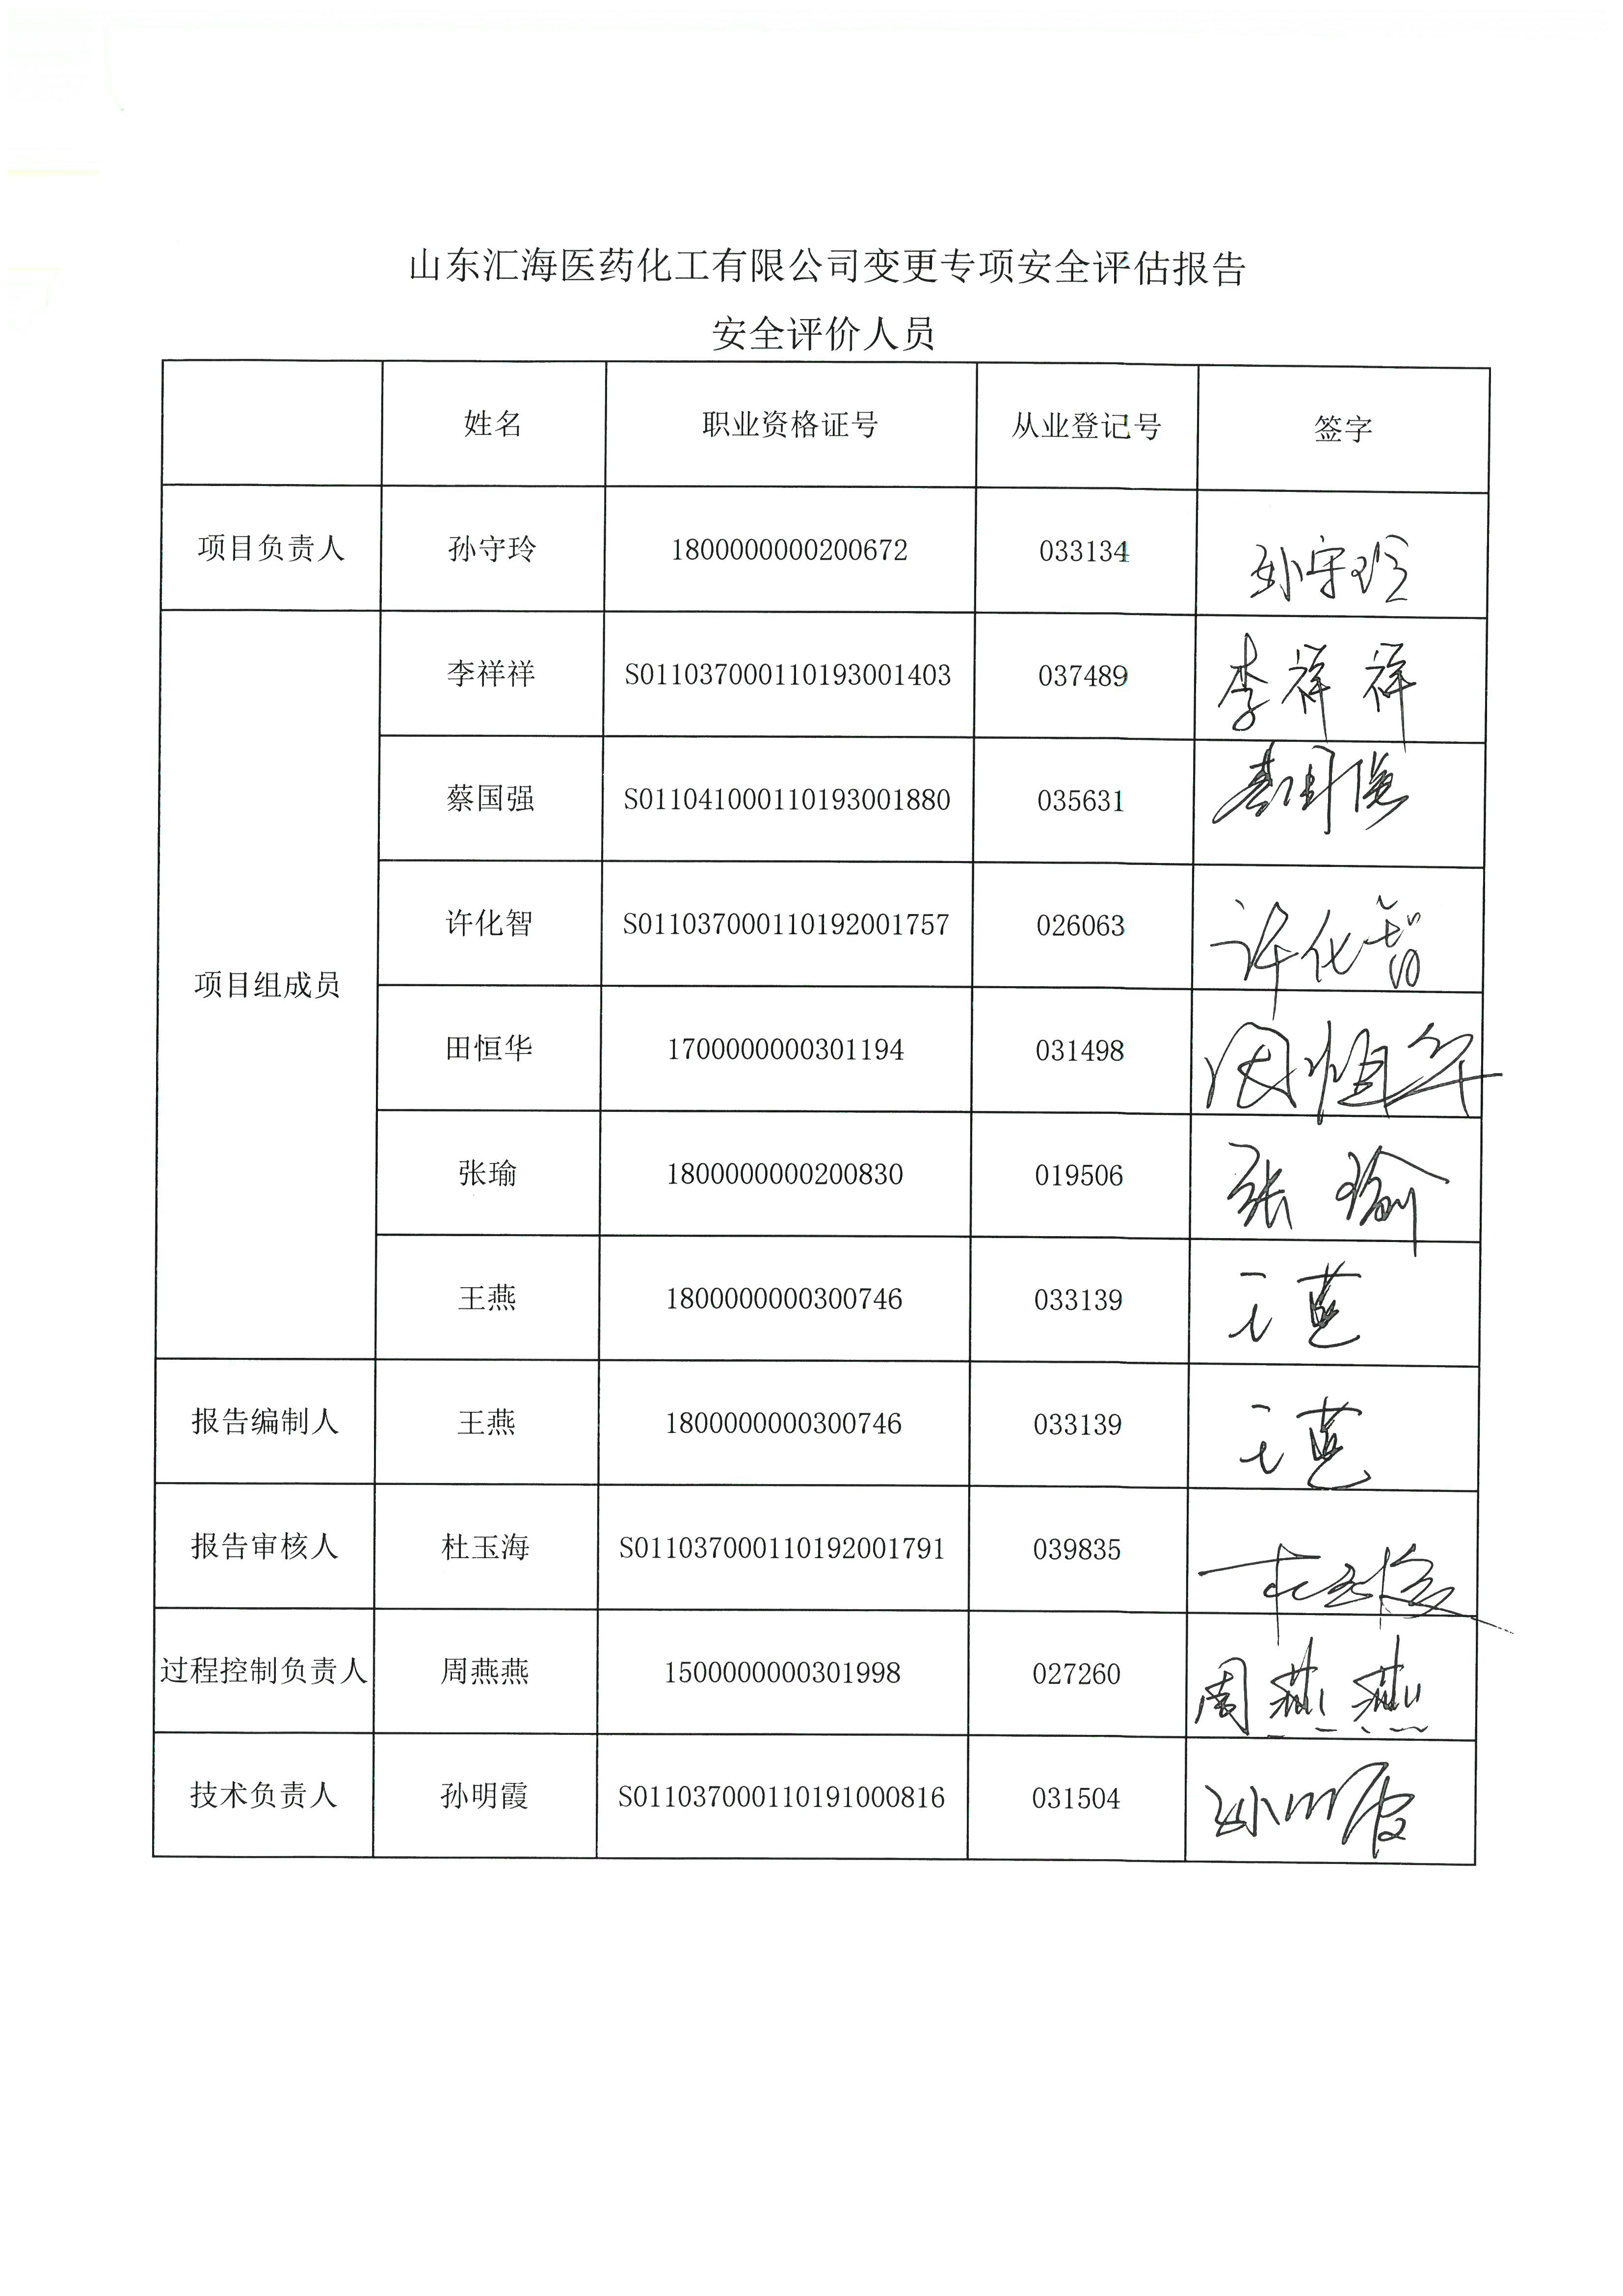 山东汇海医药化工有限公司变更专项安全评估报告
安全评价人员
姓名 职业资格证号 从业登记号 签字
项目负责人 孙守玲 1800000000200672 033134 孙守玲
项目组成员
李祥祥 S011037000110193001403 037489 李祥祥
蔡国强 S011041000110193001880 035631 蔡国强
许化智 S011037000110192001757 026063 许化智
田恒华 1700000000301194 031498 田恒华
张瑜 1800000000200830 019506 张瑜
王燕 1800000000300746 033139 王燕
报告编制人 王燕 1800000000300746 033139 王燕
报告审核人 杜玉海 S011037000110192001791 039835 杜玉海
过程控制负责人 周燕燕 1500000000301998 027260 周燕燕
技术负责人 孙明霞 S011037000110191000816 031504 孙明霞